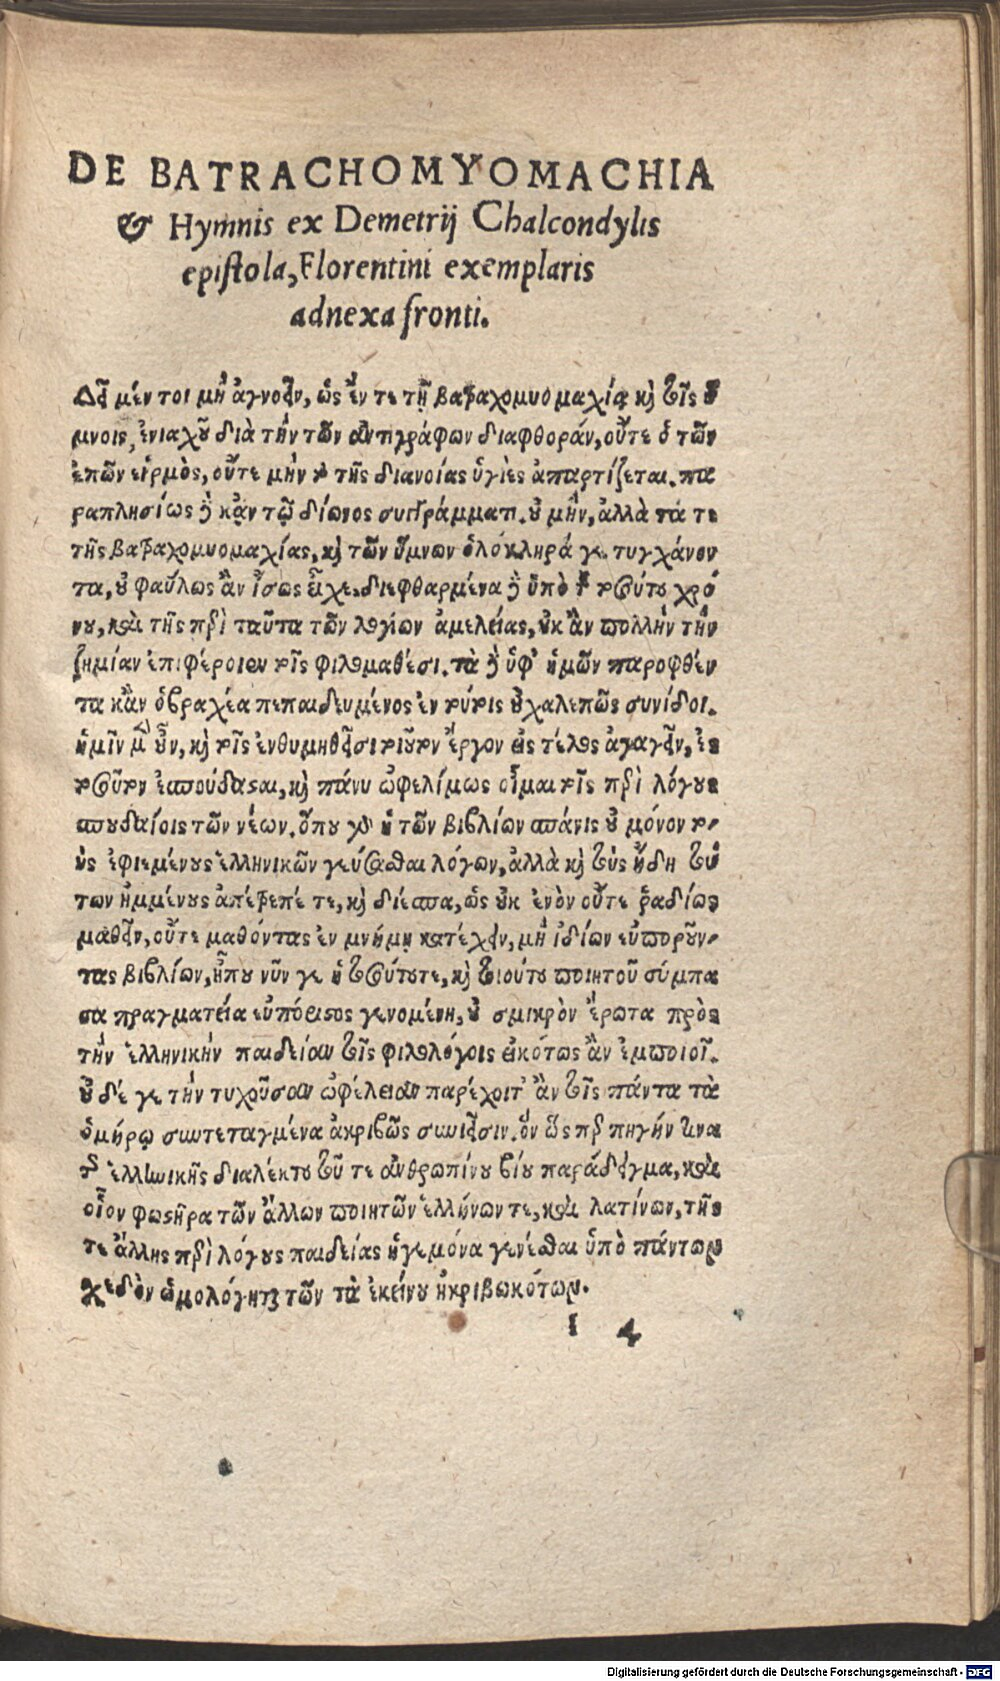 DE BATRACHOMYOMACHIA
& Hymnis ex Demetrij Chalcondylis
epistola, Florentini exemplaris
adnexa fronti.
Δεῖ μέν τοι μὴ ἀγνοεῖν, ὡς ἔν τε τῇ βατραχομυομαχίᾳ κὶ τοῖς ὕ
μνοις, ἐνιαχοῦ διὰ τὴν τῶν ἀντιγράφων διαφθοράν, οὔτε ὁ τῶν
ἐπῶν εἱρμὸς, οὔτε μὴν τὸ τῆς διανοίας ὑγιὲς ἀπαρτίζεται. πα
ραπλησίως δὲ κἀν τῷ δίωνος συγγράμματι. οὐ μὴν, ἀλλὰ τά τε
τῆς βατραχομυομαχίας, κὶ τῶν ὕμνων ὁλόκληρά γε τυγχάνον
τα, οὐ φαύλως ἂν ἴσως εἶχε. διεφθαρμένα δὲ ὑπὸ τοῦ τοσούτου χρό
νου, καὶ τῆς περὶ ταῦτα τῶν λογίων ἀμελείας, οὐκ ἂν πολλὴν τὴν
ζημίαν ἐπιφέροιεν τοῖς φιλομαθέσι. τὰ δὲ ὑφ' ἡμῶν παροφθέν
τα κἂν ὁ βραχέα πεπαιδευμένος ἐν τούτοις οὐ χαλεπῶς συνίδοι.
ἡμῖν μὲν οὖν, κὶ τοῖς ἐνθυμηθεῖσι τοιοῦτον ἔργον εἰς τέλος ἀγαγεῖν, ἐς
τοσοῦτον ἐσπούδασαι, κὶ πάνυ ὠφελίμως οἶμαι τοῖς περὶ λόγους
σπουδαίοις τῶν νέων. ὅπου γὰρ ἡ τῶν βιβλίων σπάνις οὐ μόνον το
ὺς ἐφιεμένους ἑλληνικῶν γεύσασθαι λόγων, ἀλλὰ κὶ τοὺς ἤδη τού
των ἡμμένους ἀπέτρεπέ τε, κὶ διέσπα, ὡς οὐκ ἐνὸν οὔτε ῥαδίως
μαθεῖν, οὔτε μαθόντας ἐν μνήμῃ κατέχειν, μὴ ἰδίων εὐποροῦν
τας βιβλίων, ἦπου νῦν γε ἡ τοσούτου τε, κὶ τοιούτου ποιητοῦ σύμπα
σα πραγματεία εὐπόριστος γενομένη, οὐ σμικρὸν ἔρωτα πρὸς
τὴν ἑλληνικὴν παιδείαν τοῖς φιλολόγοις εἰκότως ἂν ἐμποιοῖ.
οὐδέ γε τὴν τυχοῦσαν ὠφέλειαν παρέχοιτ' ἂν τοῖς πάντα τὰ
ὁμήρῳ συντεταγμένα ἀκριβῶς συνιεῖσιν. ὃν ὥσπερ πηγήν τινα
τῆς ἑλληνικῆς διαλέκτου τοῦ τε ἀνθρωπίνου βίου παράδειγμα, καὶ
οἷον φωστῆρα τῶν ἄλλων ποιητῶν ἑλλήνων τε, καὶ λατίνων, τῆς
τε ἄλλης περὶ λόγους παιδείας ἡγεμόνα γενέσθαι ὑπὸ πάντων
σχεδὸν ὡμολόγηται τῶν τὰ ἐκείνου ἠκριβωκότων.
I 4
Digitalisierung gefördert durch die Deutsche Forschungsgemeinschaft - DFG